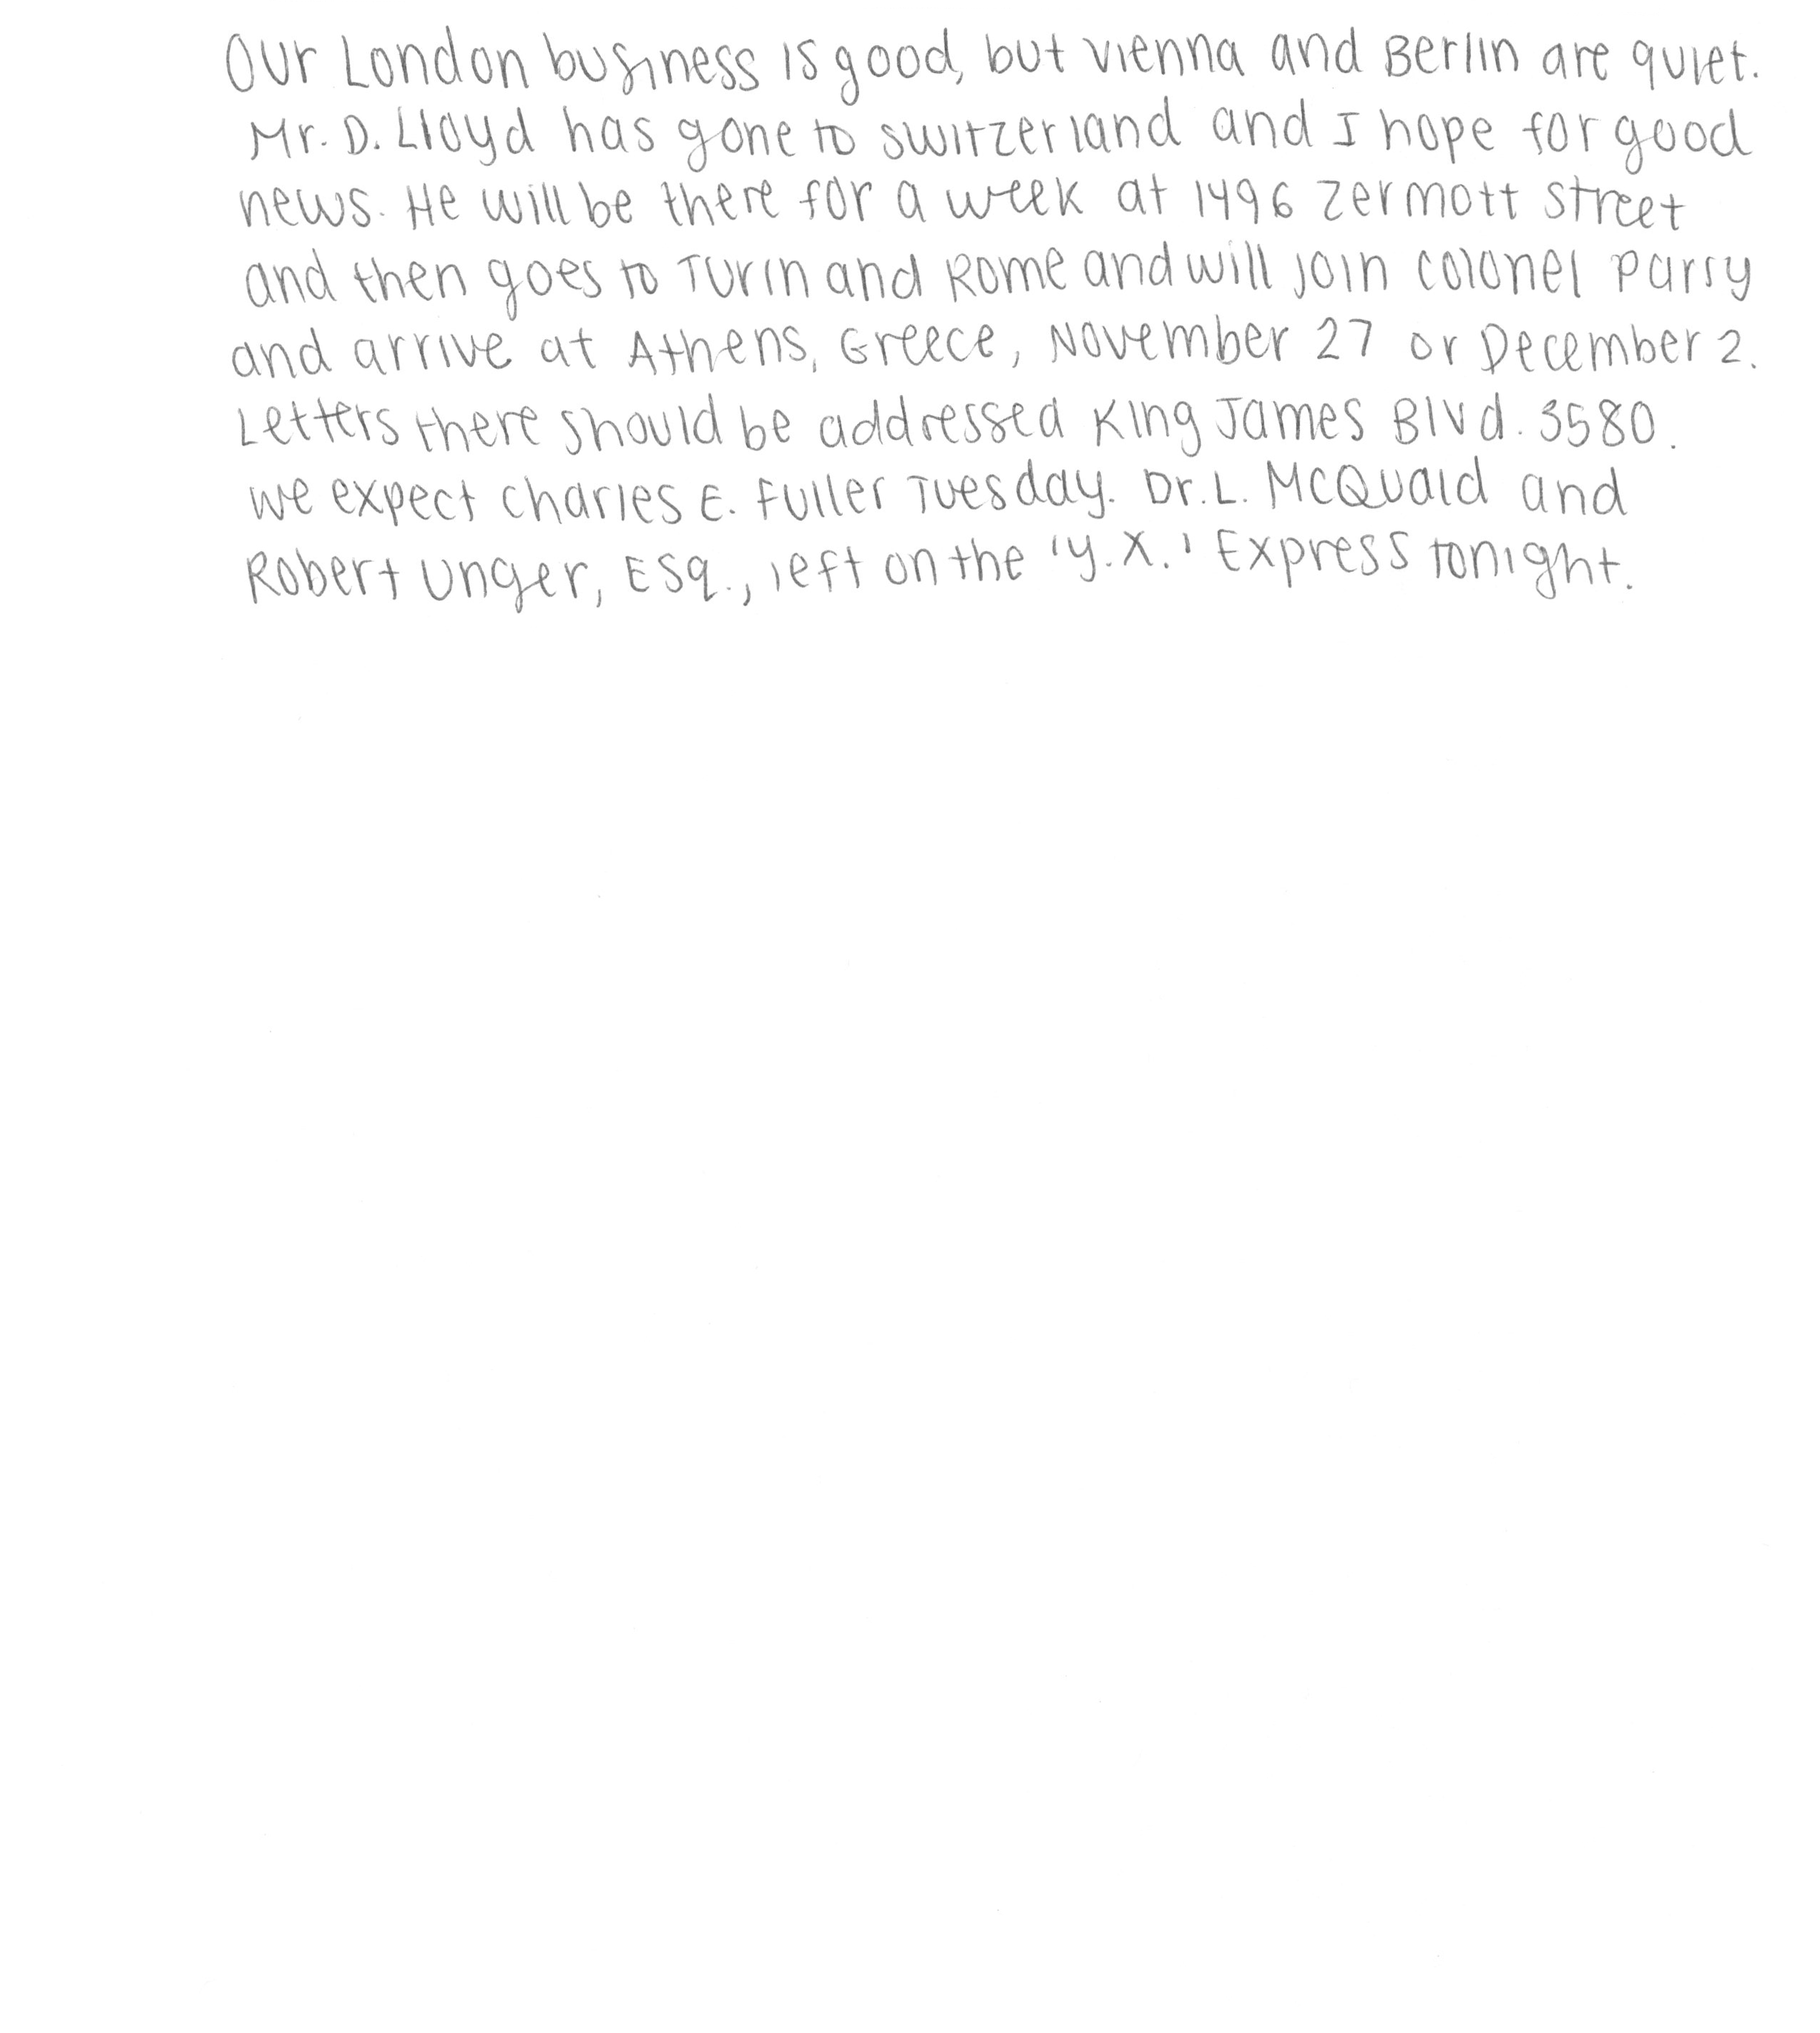 Our London business is good, but Vienna and Berlin are quiet.
Mr. D. Lloyd has gone to Switzerland and I hope for good
news. He will be there for a week at 1496 Zermott Street
and then goes to Turin and Rome and will join Colonel Parry
and arrive at Athens, Greece, November 27 or December 2.
Letters there should be addressed King James Blvd. 3580.
We expect Charles E. Fuller Tuesday. Dr. L. McQuaid and
Robert Unger, Esq., left on the 'Y.X.' Express tonight.